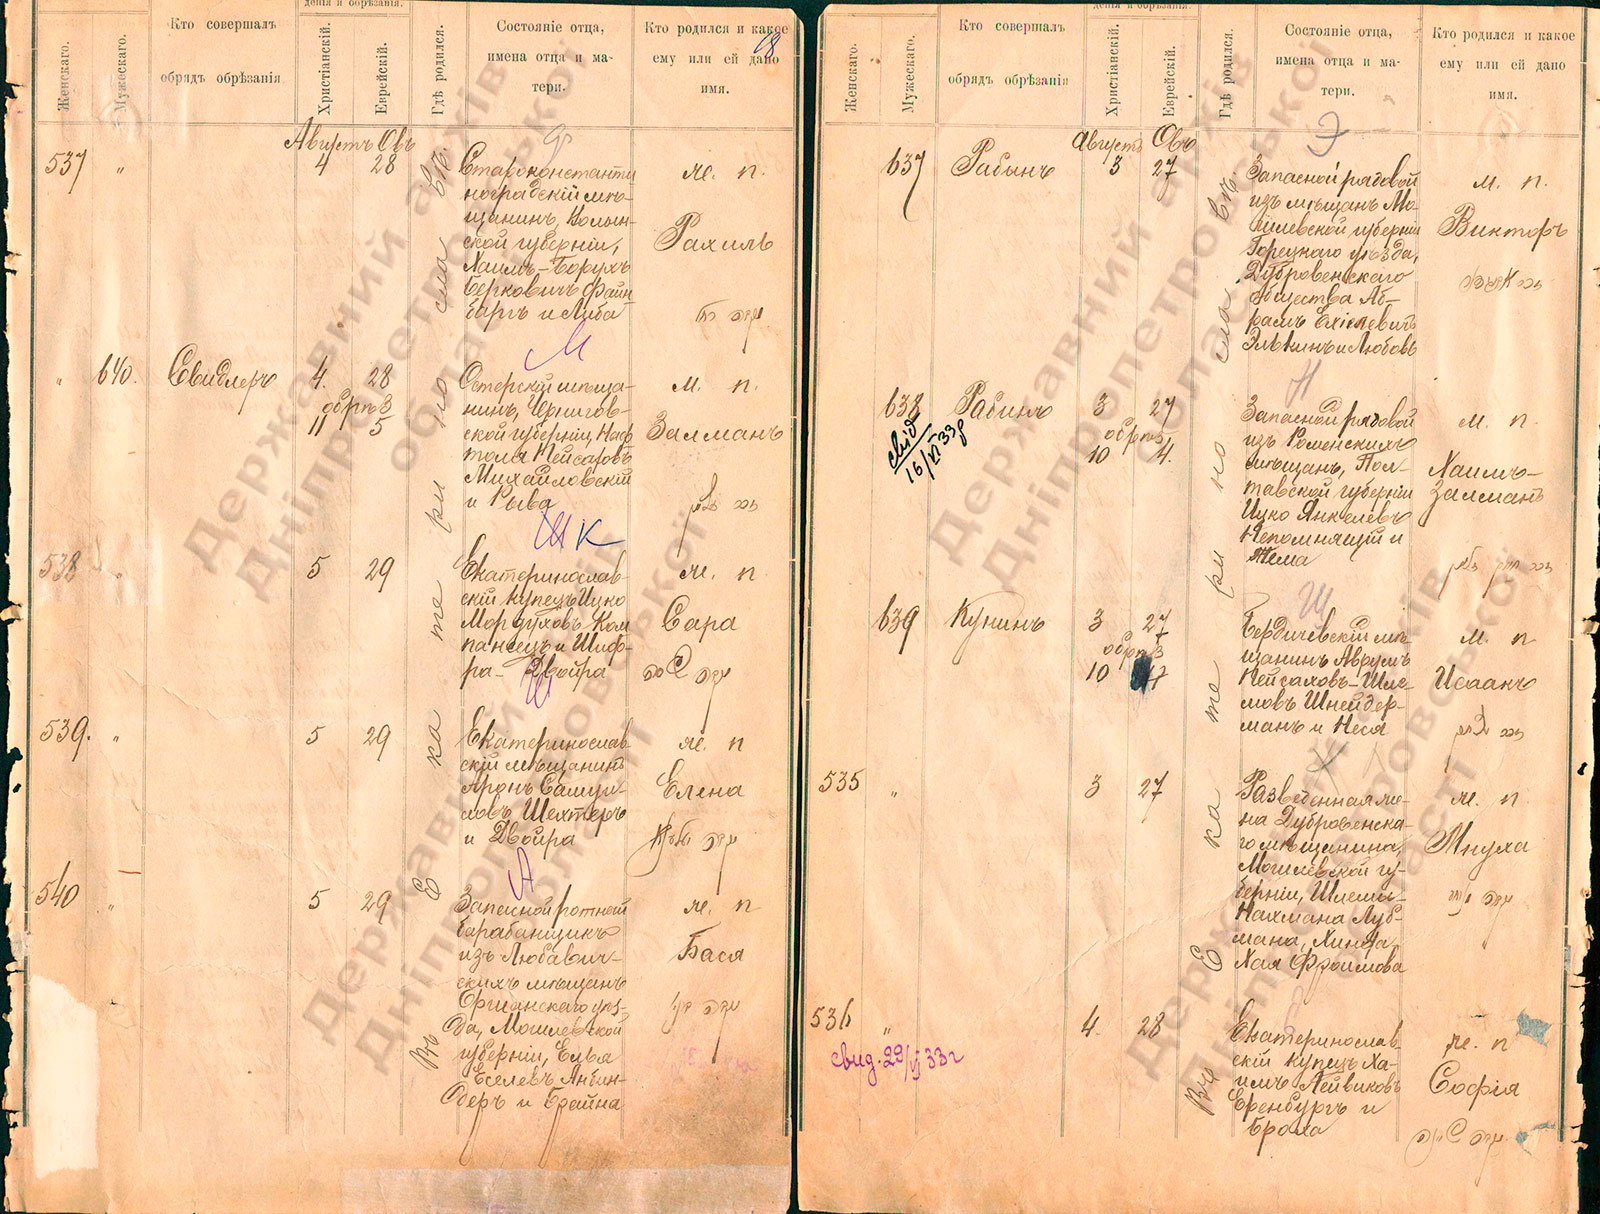 Женскаго.
Мужескаго.
Кто совершалъ
обрядъ обрѣзанія
дения и обрѣзанія.
Христіанскій.
Еврейскій.
Гдѣ родился.
Состояніе отца,
имена отца и ма-
тери.
Кто родился и какое
ему или ей дано
имя.
98
Августъ Овъ
537 " 4 28
Староконстанти
ноградскій мѣ-
щанинъ, Волын-
ской губерніи,
Хаимъ-Борухъ
Берковичъ Файн
бергъ и Либа
ж. п.
Рахиль
М
" 640. Свидлеръ 4. 28
обрѣз
11 5
Остерскій мѣща-
нинъ, Чернигов-
ской губерніи Наф
толя Нейсаховъ
Михайловскій
и Рыва
м. п.
Залманъ
Ш К
538 " 5 29
Екатеринослав-
скій купецъ Ицко
Мордуховъ Ком
панеецъ и Шиф-
ра-Двойра
ж. п
Сара
Ш
539. " 5 29
Екатеринослав
скій мѣщанинъ
Аронъ Самуи-
ловъ Шехтеръ
и Двойра
ж. п
Елена
А
540 " 5 29
Запасной ротный
барабанщикъ
изъ Любавич-
скихъ мѣщанъ
Оршанскаго уѣз-
да, Могилевской
губерніи, Елья
Еселевъ Анбин-
деръ и Брайна
ж. п
Бася
Въ Екатеринославѣ.
Женскаго.
Мужескаго.
Кто совершалъ
обрядъ обрѣзанія
дения и обрѣзанія.
Христіанскій.
Еврейскій.
Гдѣ родился.
Состояніе отца,
имена отца и ма-
тери.
Кто родился и какое
ему или ей дано
имя.
Августъ Овъ
Э
637 Рабинъ 3 27
Запасной рядовой
изъ мѣщанъ Мо-
гилевской губерніи
Горецкаго уѣзда,
Дубровенскаго
общества Аб-
рамъ Ехіелевичъ
Элькинъ и Любовь
м. п.
Викторъ
Н
638 Рабинъ 3 27
обрѣз
10 4.
свід
16/VI 33 р
Запасной рядовой
изъ Роменскихъ
мѣщанъ, Пол-
тавской губерніи
Ицко Янкелевъ
Непомнящій и
Тема
м. п.
Хаимъ-
Залманъ
Ш
639 Кунинъ 3 27
обрѣз
10
Бердичевскій мѣ-
щанинъ Аврумъ
Нейсаховъ-Шле-
мовъ Шнейдер-
манъ и Неся
м. п
Исаакъ
535 " 3 27
Разведенная же-
на Дубровенска-
го мѣщанина,
Могилевской гу-
берніи, Шлемы-
Нахмана Луб-
мана, Хинда
Хая Фроимова
ж. п
Мнуха
536 " 4. 28
свид. 29/VI 33 г
Екатеринослав-
скій купецъ Ха-
имъ Лейвиковъ
Еренбургъ и
Броха
ж. п
Софія
Въ Екатеринославѣ.
Державний архів
Дніпропетровської
області
Державний архів
Дніпропетровської
області
Державний архів
Дніпропетровської
області
Державний архів
Дніпропетровської
області